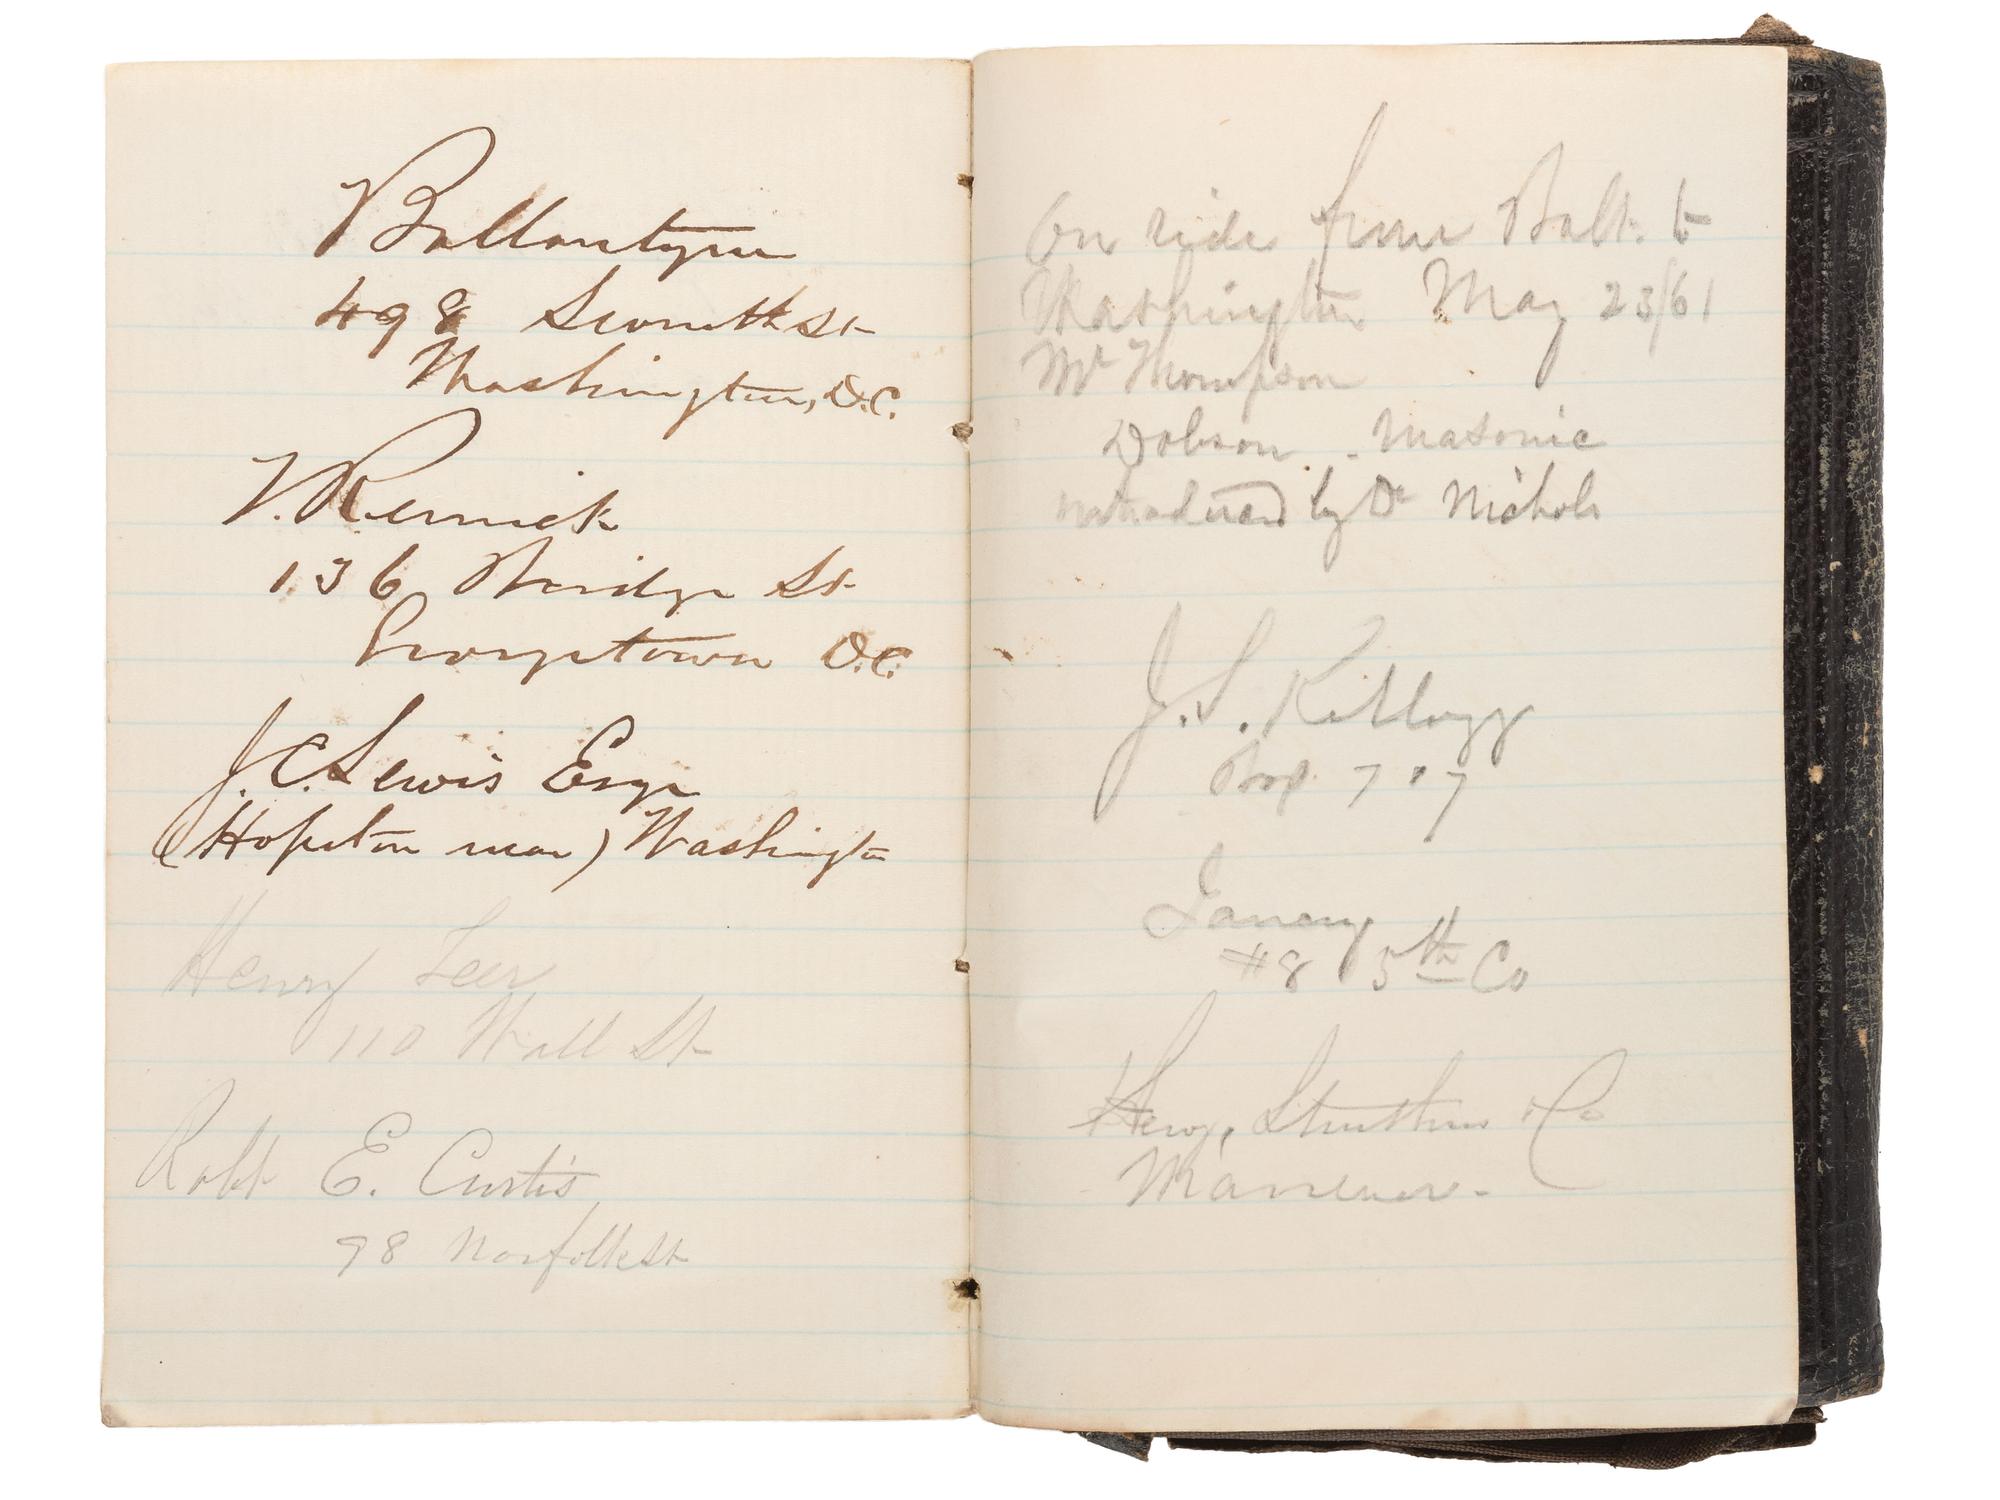 Ballantyne
498 Seventh St
Washington, D.C.
V. Rennick
136 Bridge St
Georgetown D.C.
J. C. Lewis Esqr
(Hopeton man) Washington
Henry Leer
110 Wall St
Robt E. Curtis
98 Norfolk St
On ride from Balt. to
Washington May 23/61
Mr Thompson
Dobson - Masonic
introduced by Dr Nichols
J. S. Kellogg
Box 707
Janeny
#8 5th Co
Struthers & Co